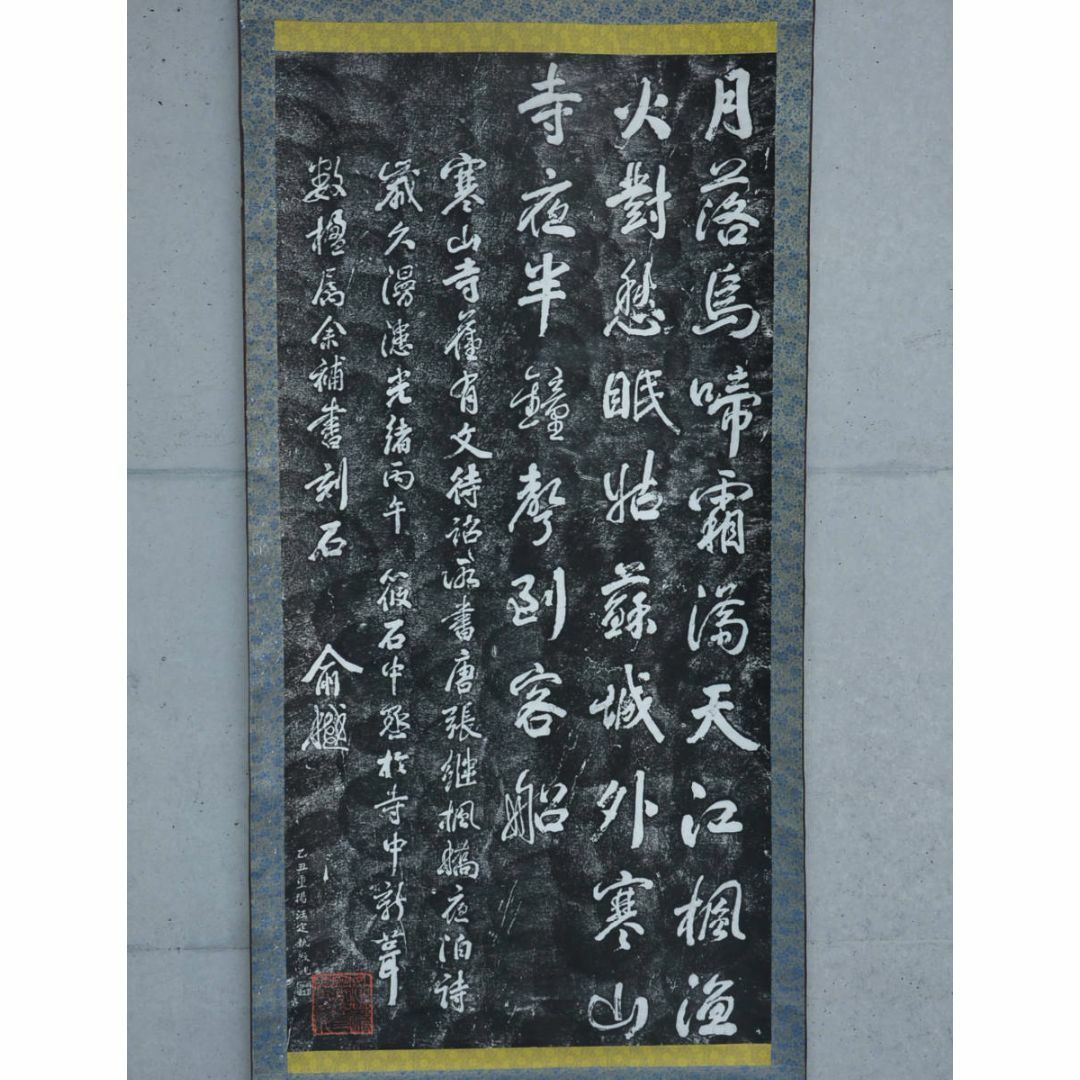 月落烏啼霜满天江楓漁
火對愁眠姑蘇城外寒山
寺夜半鐘聲到客船
寒山寺舊有文待詔所書唐張继楓橋夜泊詩
歲久漫漶光緒丙午 筱石中丞於寺中新葺
数楹属余補書刻石 俞樾
乙丑重